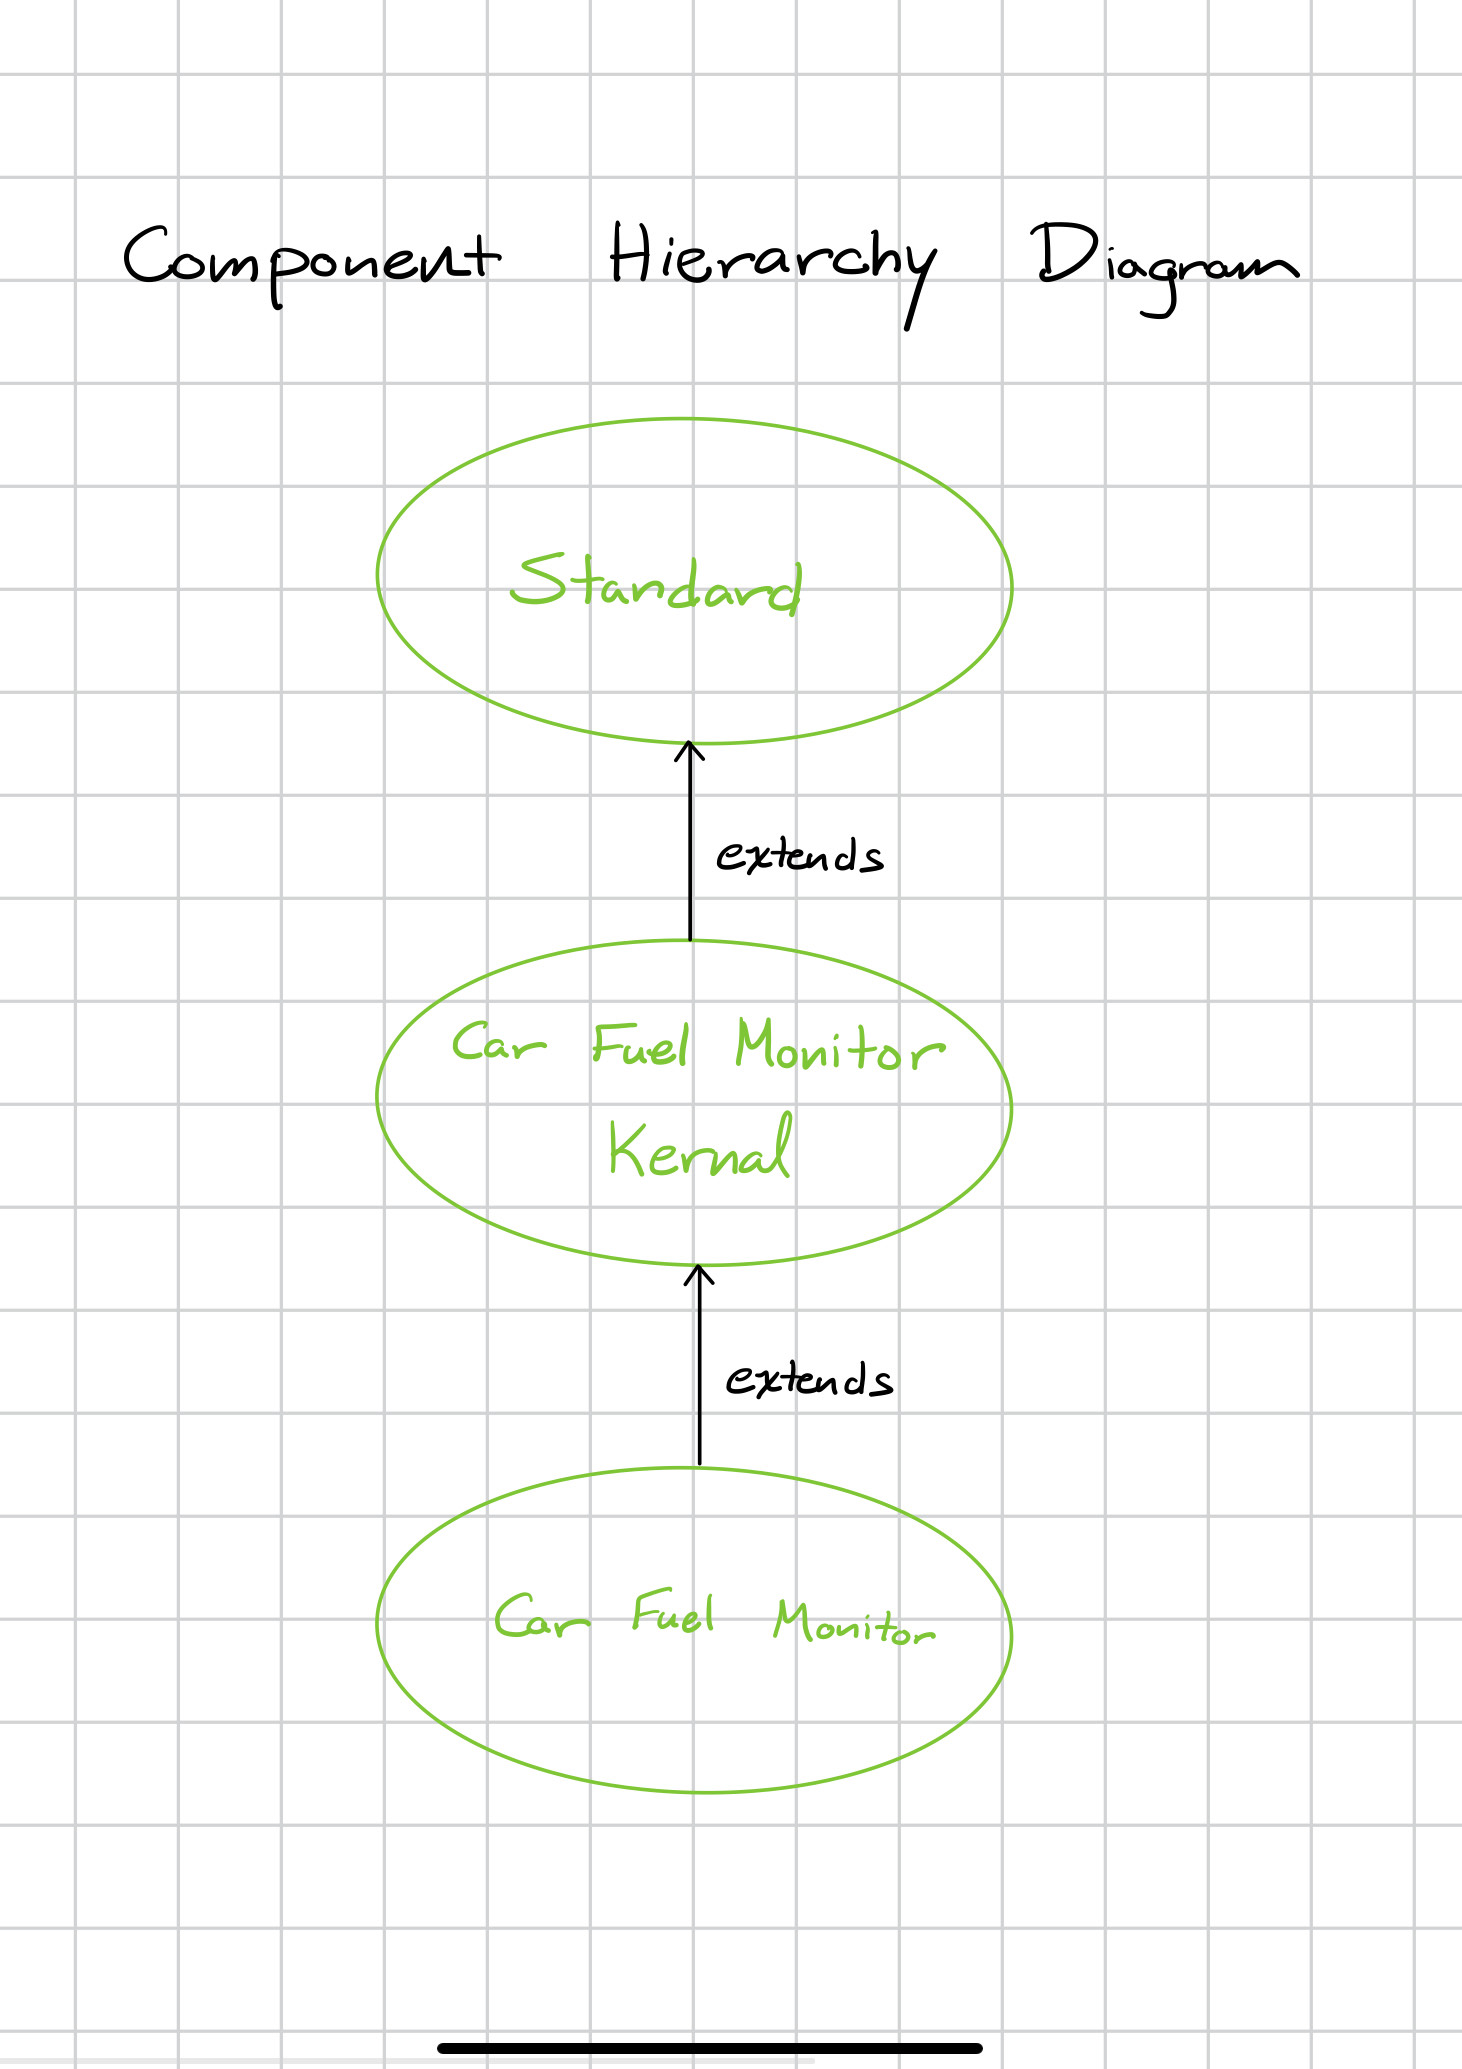 Component Hierarchy Diagram
Standard
extends
Car Fuel Monitor
Kernal
extends
Car Fuel Monitor